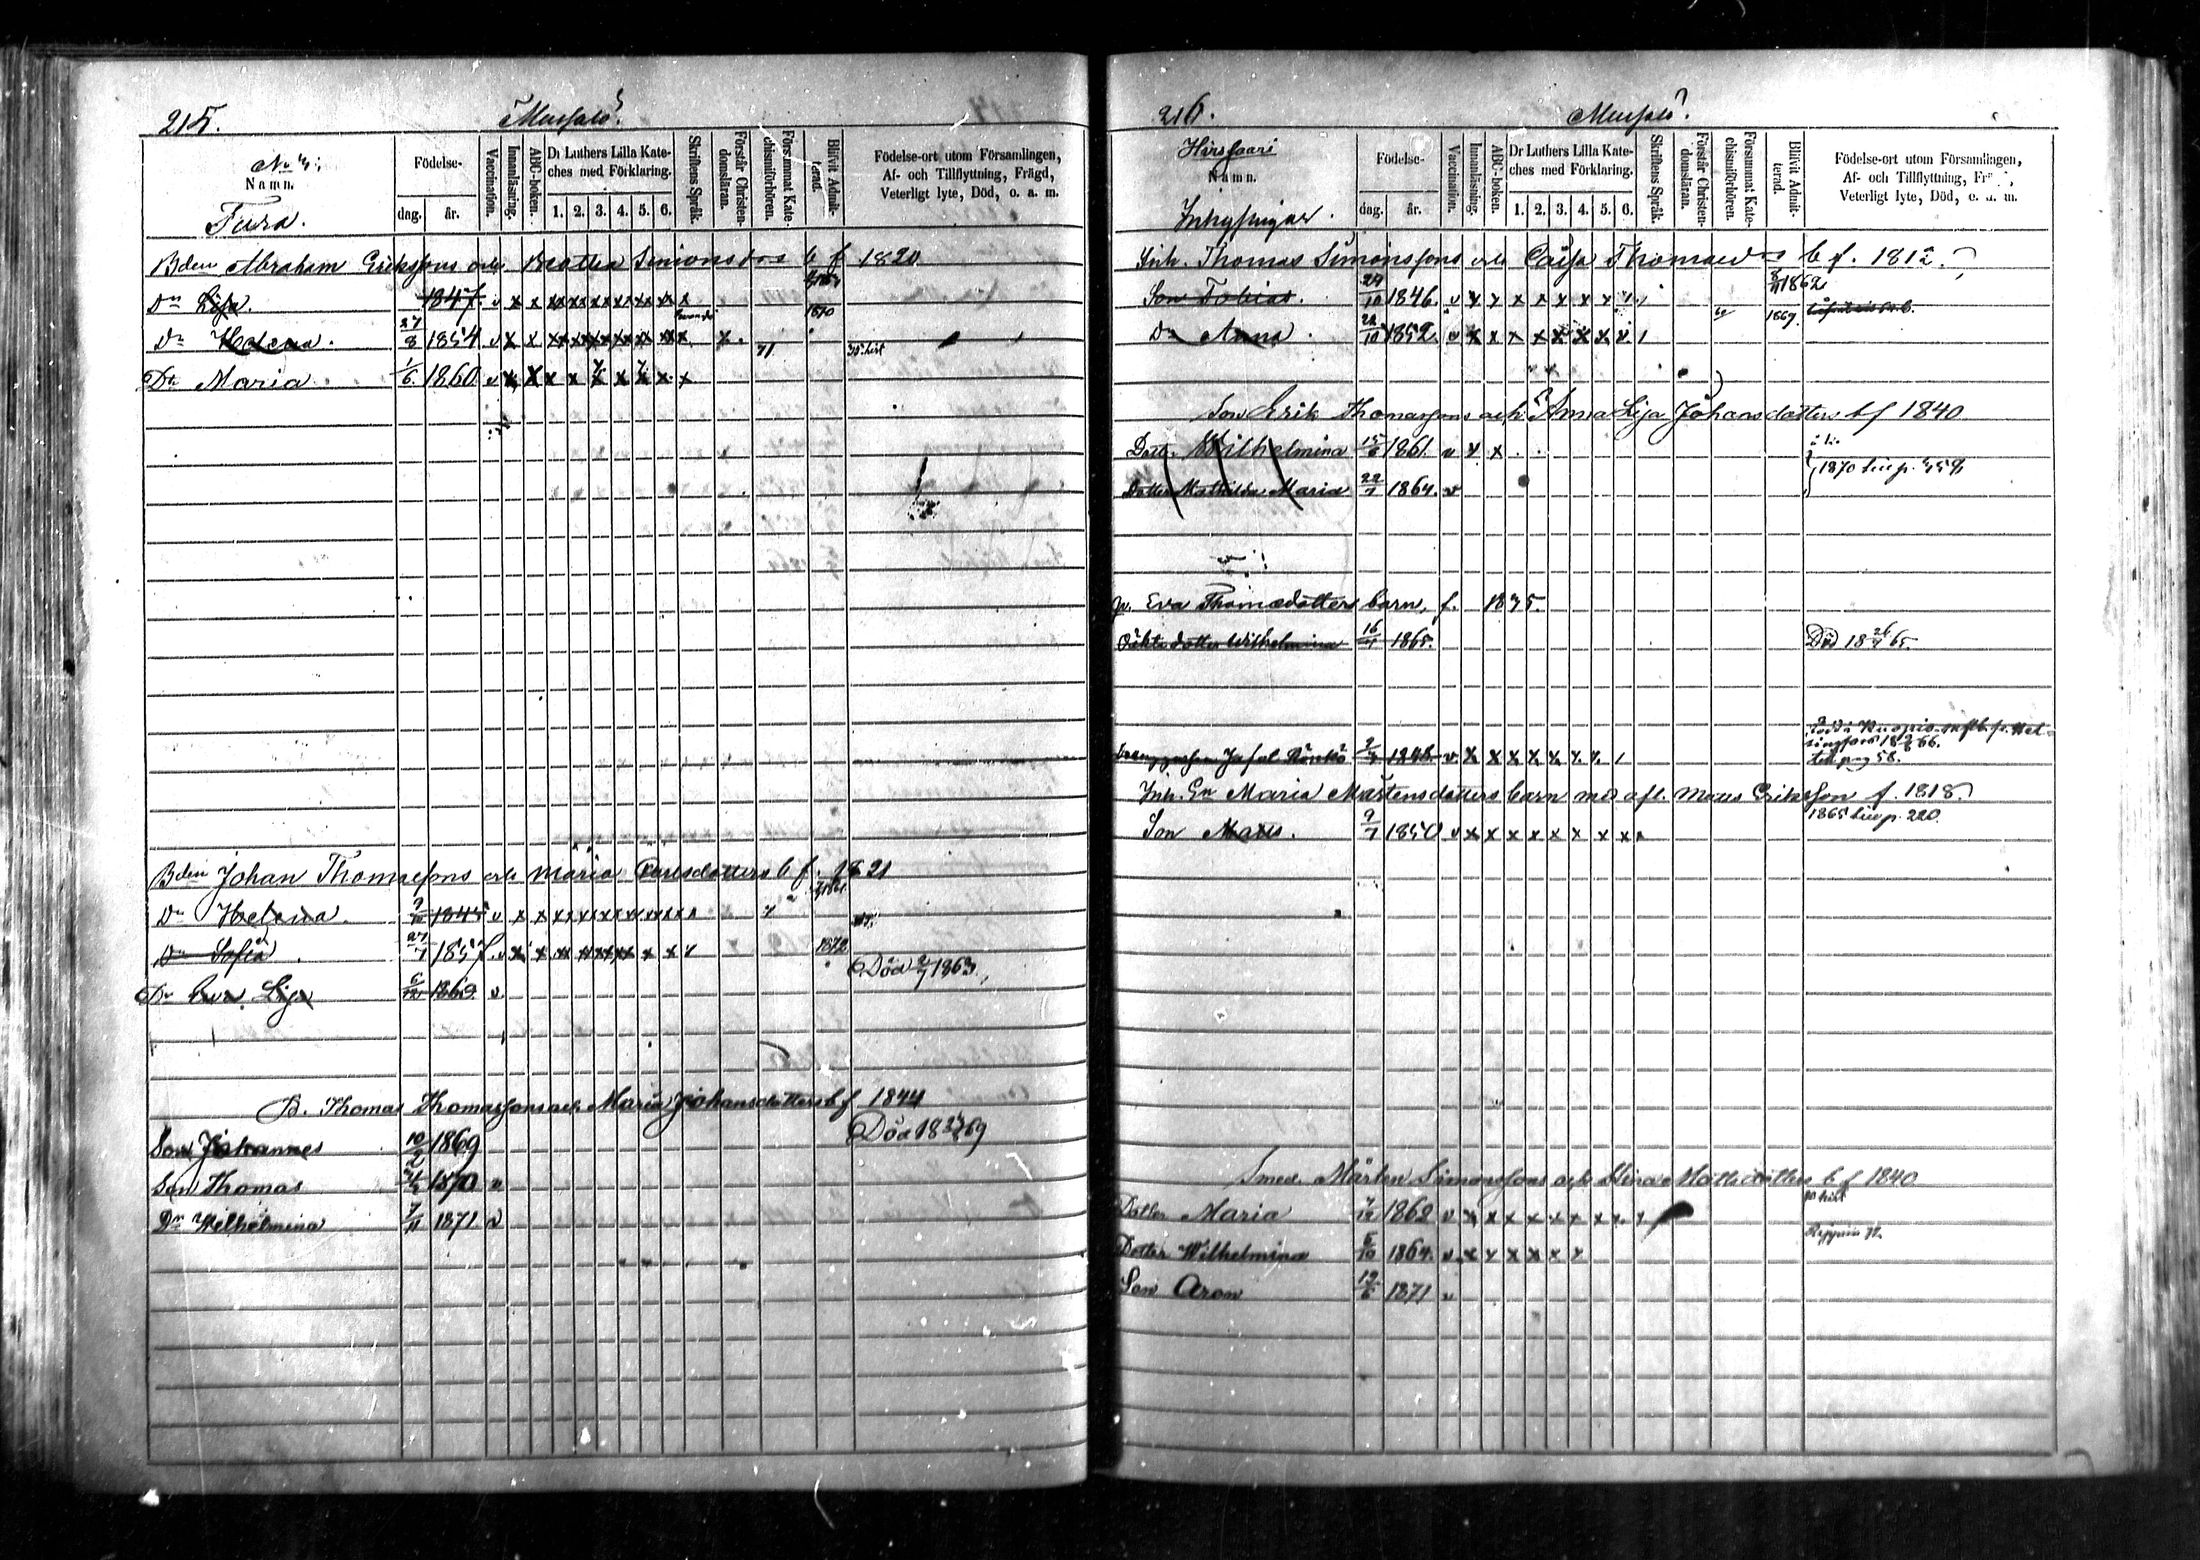 215.
Mussalö.
No 4.
Namn.
Fura.
Födelse-
dag. år.
Vaccination.
Innanläsning.
ABC-boken.
Dr Luthers Lilla Kate-
ches med Förklaring.
1. 2. 3. 4. 5. 6.
Skriftens Språk.
Förstår Christen-
domsläran.
Försummat Kate-
chismiförhören.
Blifvit Admit-
terad.
Födelse-ort utom Församlingen,
Af- och Tillflyttning, Frägd,
Veterligt lyte, Död, o. a. m.
Bden Abraham Erikssons och Beatha Simonsdrs b f 1820
Dr Lisa 1847 v x x xx xx xx xx xx xx x
Dr Helena. 27/8 1854 v x x xx xx xx xx xx xx x x. 1870
Dr Maria 1/6 1860 v x x x x x x x x. x 71
Bden Johan Thomassons och Maria Carlsdotters b f. 1821
Dr Helena. 1845 v x x xx xx xx xx xx xx x
Dr Sofia 27/7 1857. v x x xx xx xx x x x 1872
Dr Eva Lisa 6/12 1860 v Död 2/7 1863
B. Thomas Thomassons och Maria Johansdotters b f 1844
Son Johannes 10/2 1869 Död 18 69
Son Thomas 1870 v
Dr Wilhelmina 7/11 1871 v
216.
Mussalö.
Hirssaari
Namn.
Inhysingar.
Födelse-
dag. år.
Vaccination.
Innanläsning.
ABC-boken.
Dr Luthers Lilla Kate-
ches med Förklaring.
1. 2. 3. 4. 5. 6.
Skriftens Språk.
Förstår Christen-
domsläran.
Försummat Kate-
chismiförhören.
Blifvit Admit-
terad.
Födelse-ort utom Församlingen,
Af- och Tillflyttning, Frägd,
Veterligt lyte, Död, o. a. m.
Inh. Thomas Simonssons och Caisa Thomaedrs b f. 1812.
Son Tobias. 29/10 1846. v x x x x x x x 1862
Dr Anna. 22/10 1852. v x x x x x x x 1869.
Son Erik Thomassons och Anna Lisa Johansdotters b f 1840
Dott. Wilhelmina 15/6 1861. v x x
Dotter Mathilda Maria 22/7 1864. v 1870 p. 558
Eva Thomædotters barn, f. 1835.
Oäkta dotter Wilhelmina 16/4 1865. Död 18 26/4 65.
1848 v x x x x x x x
18 66.
pag 58.
Inh. En Maria Mårtensdotters barn med afl. Matts Eriksson f. 1818.
Son Matts. 9/7 1850 v x x x x x x x x 1865 p. 220.
Smed. Mårten Simonssons och Stina Mattsdotters b f 1840
Dotter Maria 1862 v x x x x x x x x
Dotter Wilhelmina 5/10 1864. v x x x x x x
Son Aron 19/6 1871 v